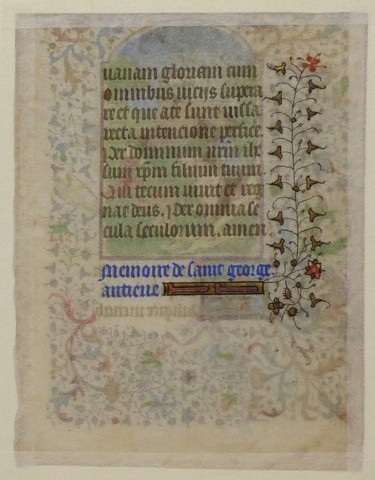 uanam gloriam cum
omnibus uicijs supera
re et que a te sunt iussa
recta intencione perfice
Per dominum nrm ihe
sum xpm filium tuum
Qui tecum uiuit et reg
nat deus. Per omnia se
cula seculorum. amen.
Memoire de saint george.
antiene